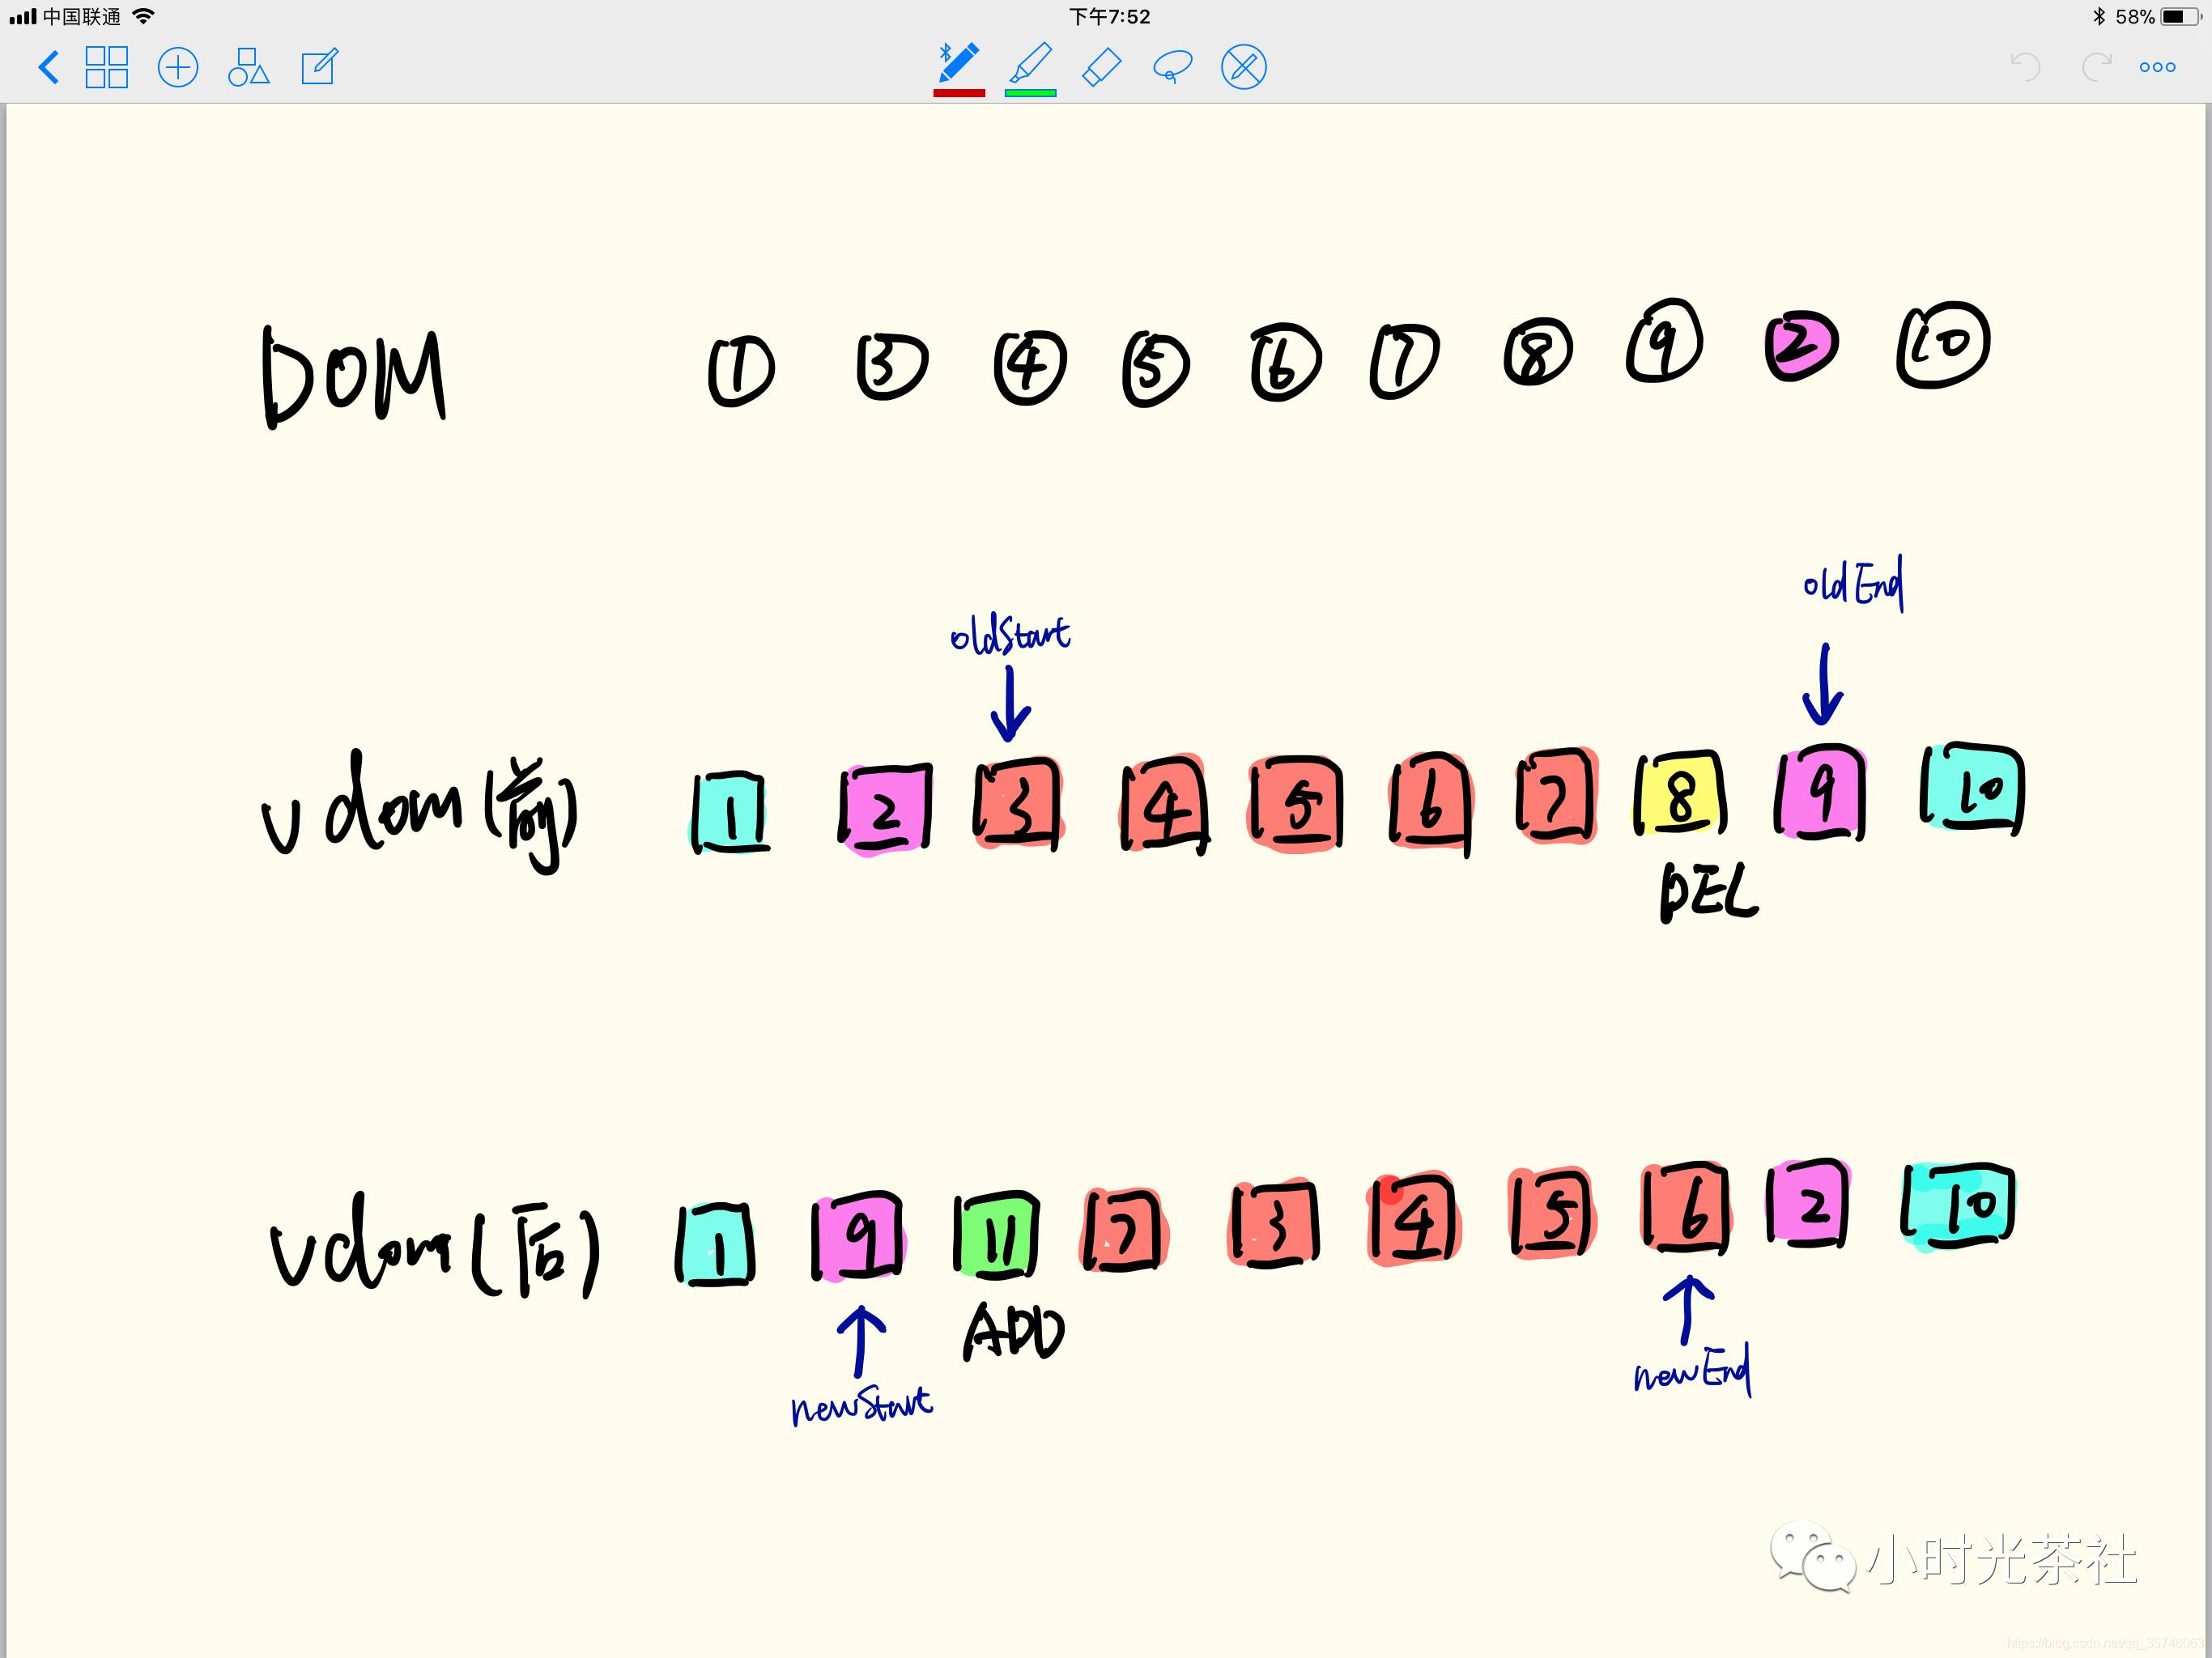 中国联通 下午7:52 58%
DOM 1 3 4 5 6 7 8 9 2 10
oldStart oldEnd
vdom(前) 1 2 3 4 5 6 7 8 9 10
DEL
vdom(后) 1 9 11 7 3 4 5 6 2 10
ADD
newStart newEnd
小时光茶社
https://blog.csdn.net/qq_35746063